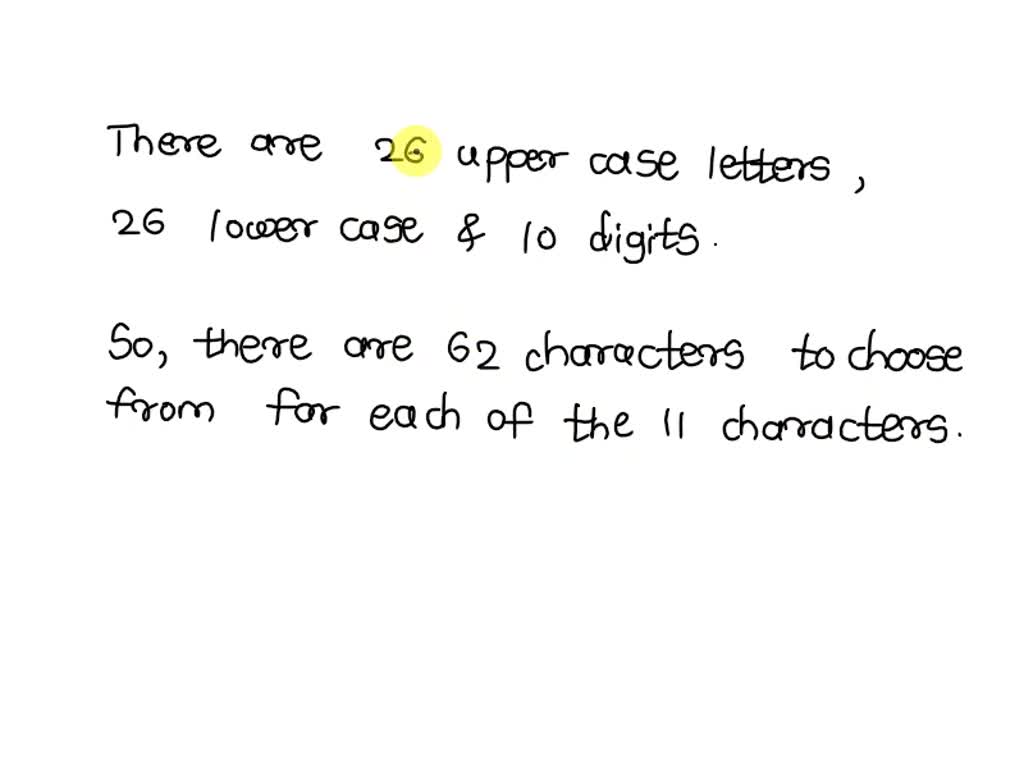 There are 26 upper case letters,
26 lower case & 10 digits.
So, there are 62 characters to choose
from for each of the 11 characters.